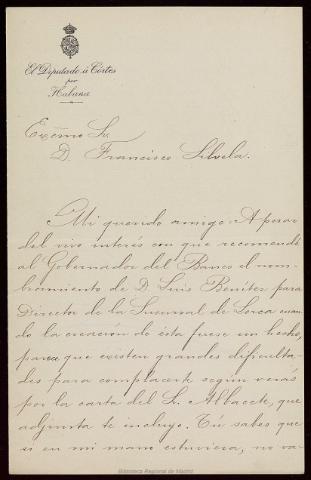 El Diputado à Córtes
por
Habana
Excmo Sr.
D. Francisco Silvela.
Mi querido amigo: A pesar
del vivo interés con que recomendé
al Gobernador del Banco el nom-
bramiento de D. Luis Benítez para
Director de la Sucursal de Lorca cuan-
do la creación de ésta fuese un hecho,
parece que existen grandes dificulta-
des para complacerte según verás
por la carta del Sr. Albacete, que
adjunta te incluyo. Tú sabes que
si en mi mano estuviera, no va-
Biblioteca Regional de Madrid